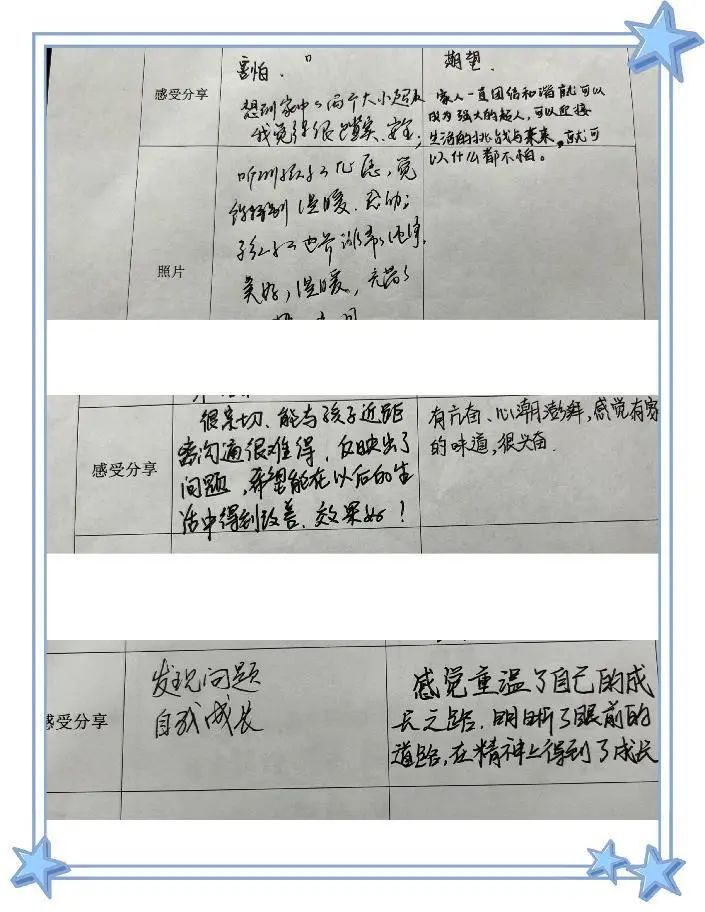 感受分享
害怕.
想到家中的两个大小超人
我觉得很踏实、安全,
期望.
家人一直团结和谐就可以
成为强大的超人,可以迎接
生活的挑战与未来,就可
以什么都不怕。
照片
听到孩子心愿,觉
得特别温暖.
美好,温暖,充满了
感受分享
很亲切、能与孩子近距
离沟通很难得,反映出了
问题,希望能在以后的生
活中得到改善.效果好!
有亢奋、心潮澎湃,感觉有家
的味道,很兴奋.
感受分享
发现问题
自我成长
感觉重温了自己的成
长之路.明晰了眼前的
道路,在精神上得到了成长